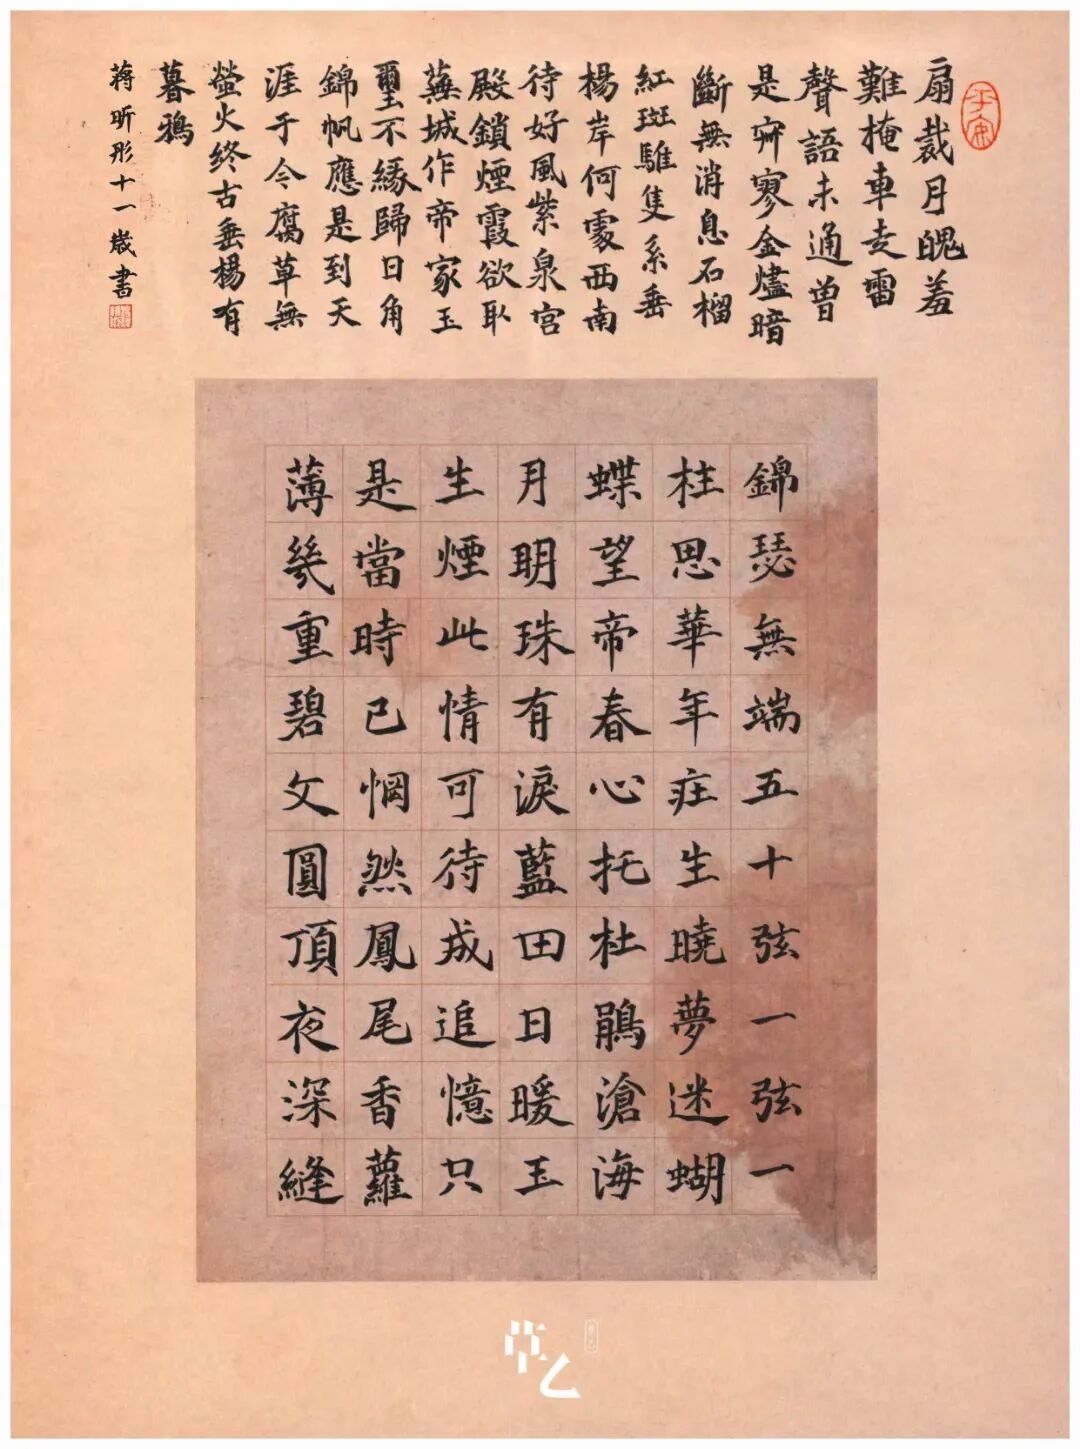 平安
扇裁月魄羞
難掩車走雷
聲語未通曾
是寂寥金燼暗
斷無消息石榴
紅斑騅隻系垂
楊岸何處西南
待好風紫泉宮
殿鎖煙霞欲取
蕪城作帝家玉
璽不緣歸日角
錦帆應是到天
涯于今腐草無
螢火終古垂楊有
暮鴉
蔣昕彤十一歲書
錦瑟無端五十弦一弦一
柱思華年莊生曉夢迷蝴
蝶望帝春心托杜鵑滄海
月明珠有淚藍田日暖玉
生煙此情可待成追憶只
是當時已惘然鳳尾香蘿
薄幾重碧文圓頂夜深縫
草乙